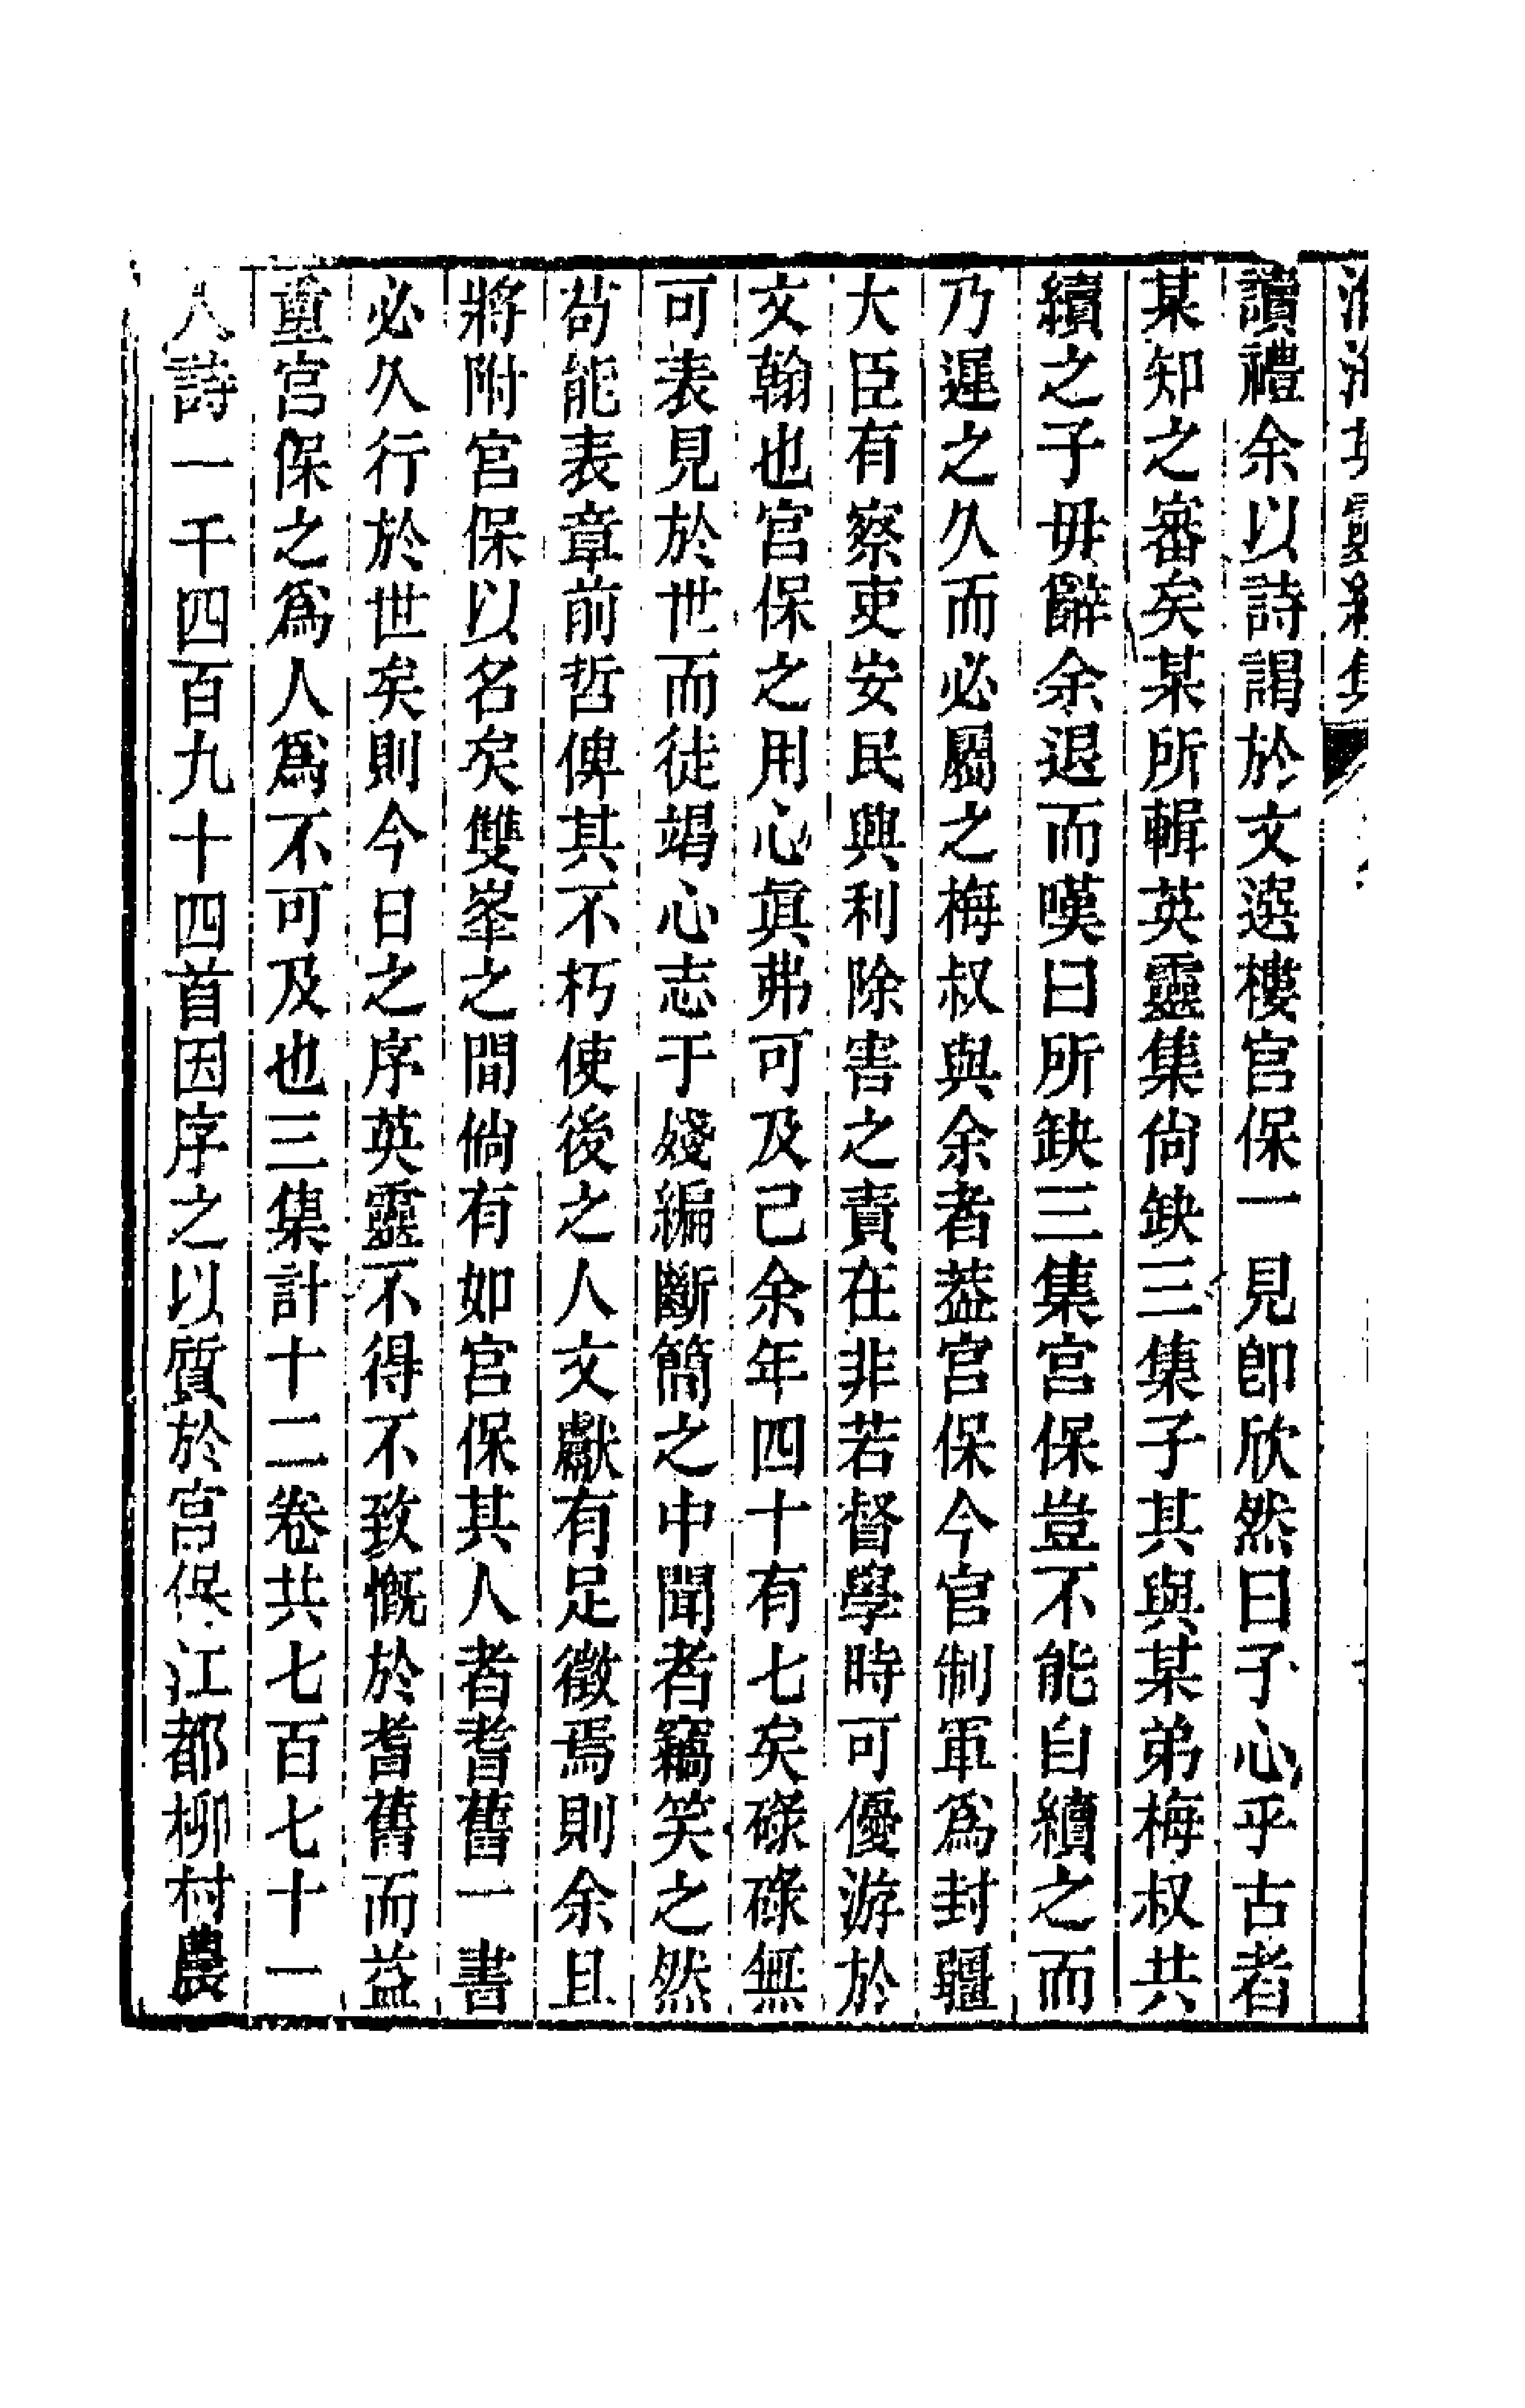 讀禮余以詩謁於文選樓宮保一見卽欣然曰子心乎古者
某知之審矣某所輯英靈集尙缺三集子其與某弟梅叔共
續之子毋辭余退而嘆曰所缺三集宮保豈不能自續之而
乃遲之久而必屬之梅叔與余者葢宮保今官制軍爲封疆
大臣有察吏安民興利除害之責在非若督學時可優游於
文翰也宮保之用心眞弗可及己余年四十有七矣碌碌無
可表見於世而徒竭心志于殘編斷簡之中聞者竊笑之然
苟能表章前哲俾其不朽使後之人文獻有足徵焉則余且
將附宮保以名矣雙峯之間倘有如宮保其人者耆舊一書
必久行於世矣則今日之序英靈不得不致慨於耆舊而益
重宮保之爲人爲不可及也三集計十二卷共七百七十一
人詩一千四百九十四首因序之以質於宮保江都柳村農